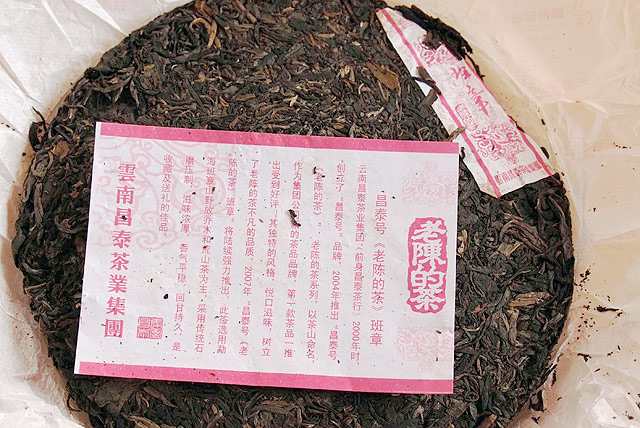 老陳的茶
昌泰号《老陈的茶》班章
云南昌泰茶业集团（前身昌泰茶行）2000年时，
创立了“昌泰号”品牌，2004年推出“昌泰号，
《老陈的茶》”，老陈的茶系列，以茶山命名，
作为集团公司的茶品品牌，第一款茶品一推
出受到好评，其独特的风格，悦口滋味，树立
了老陈的茶不凡的品质。2007年“昌泰号《老
陈的茶》班章，将陆续强力推出，此茶选用勐
海班章山野放乔木和高山茶为主，采用传统石
磨压制，滋味浓厚，香气平稳，回甘持久，是
收藏及送礼的佳品。
雲南昌泰茶業集團
班章